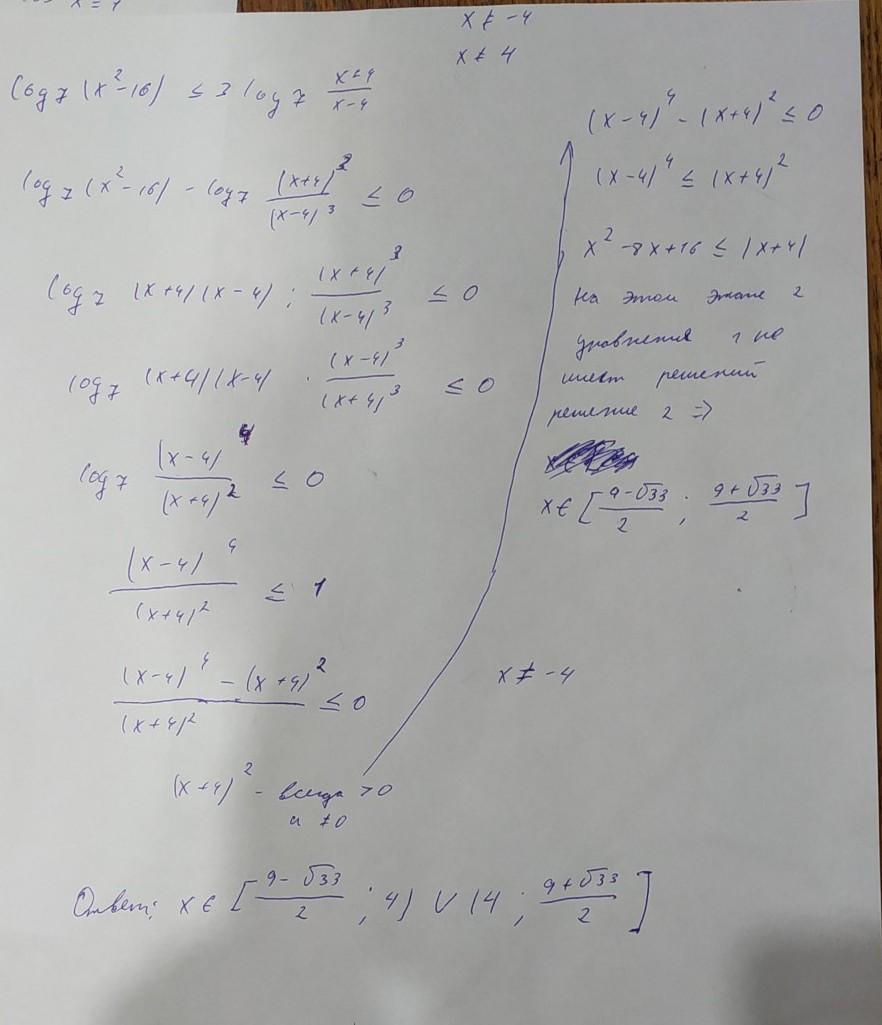 x ≠ -4
x ≠ 4
log 7 (x²-16) ≤ 3 log 7 \frac{x+4}{x-4}
log 7 (x²-16) - log 7 \frac{(x+4)^3}{(x-4)^3} ≤ 0
log 7 (x+4)(x-4) : \frac{(x+4)^3}{(x-4)^3} ≤ 0
log 7 (x+4)(x-4) · \frac{(x-4)^3}{(x+4)^3} ≤ 0
log 7 \frac{(x-4)^4}{(x+4)^2} ≤ 0
\frac{(x-4)^4}{(x+4)^2} ≤ 1
\frac{(x-4)^4-(x+4)^2}{(x+4)^2} ≤ 0
(x+4)² - всегда >0
и ≠0
(x-4)⁴ - (x+4)² ≤ 0
(x-4)⁴ ≤ (x+4)²
x² -8x+16 ≤ |x+4|
На этом этапе 2
уравнения 1 не
имеет решений
решение 2 =>
x∈ [\frac{9-√33}{2} ; \frac{9+√33}{2}]
x ≠ -4
Ответ: x∈ [\frac{9-√33}{2} ; 4) ∪ (4 ; \frac{9+√33}{2}]